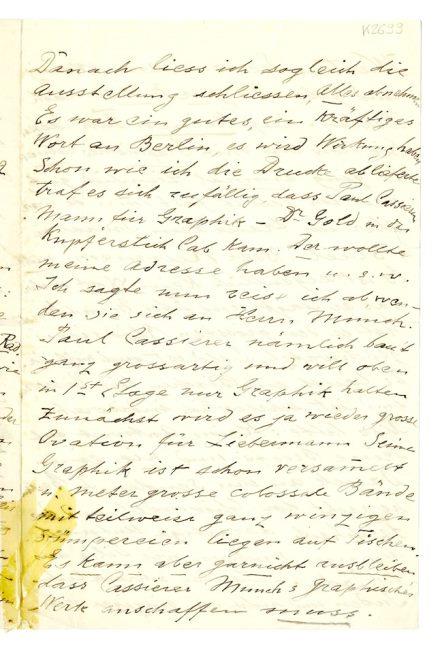 K2693
Danach liess ich sogleich die
Ausstellung schliessen, Alles abnehmen
Es war ein gutes, ein Kräftiges
Wort an Berlin, es wird Wirkung haben
Schon wie ich die Drucke ablieferte
traf es sich zufällig, dass Paul Cassirer
Mann für Graphik – Dr Gold in das
Kupferstich Cab. kam. Der wollte
meine Adresse haben u. s. w.
Ich sagte nun reise ich ab wen-
den sie sich an Herrn Munch.
Paul Cassierer nämlich baut
ganz grossartig und will oben
in 1st Etage nur Graphik halten
Zunächst wird es ja wieder grosse
Ovation für Liebermann Seine
Graphik ist schon versammelt
u. meter grosse colossale Bände
mit teilweise ganz winzigen
Stümpereien liegen auf Tischen
Es kann aber garnicht ausbleiben
dass Cassierer Munch's graphisches
Werk anschaffen muss.